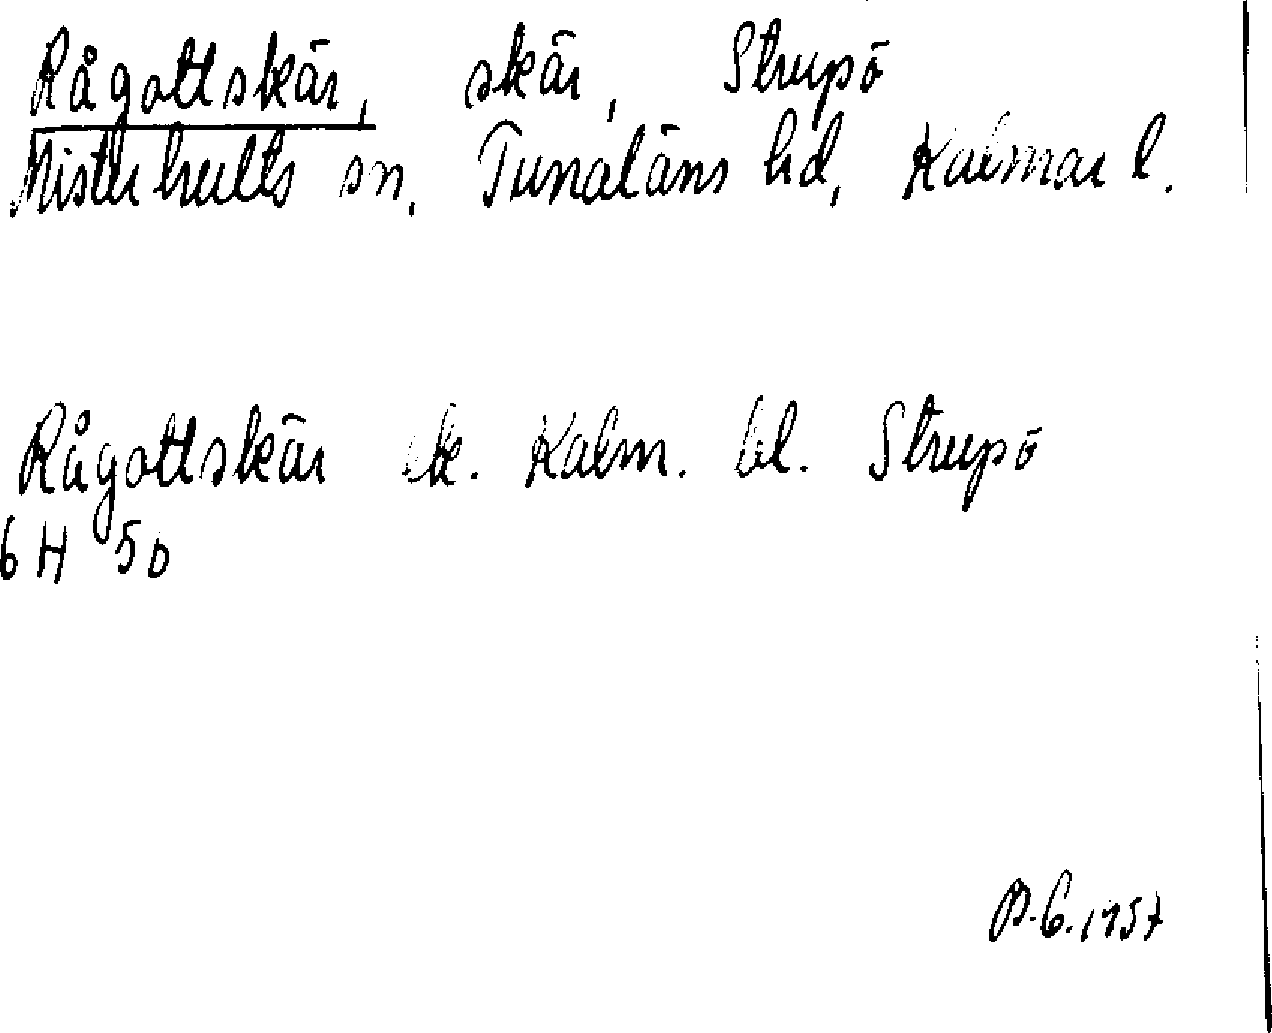 Rågottskär, skär, Strupö
Misterhults sn. Tunaläns hd, Kalmar l.
Rågottskär ek. Kalm. bl. Strupö
6 H 5 b
1957